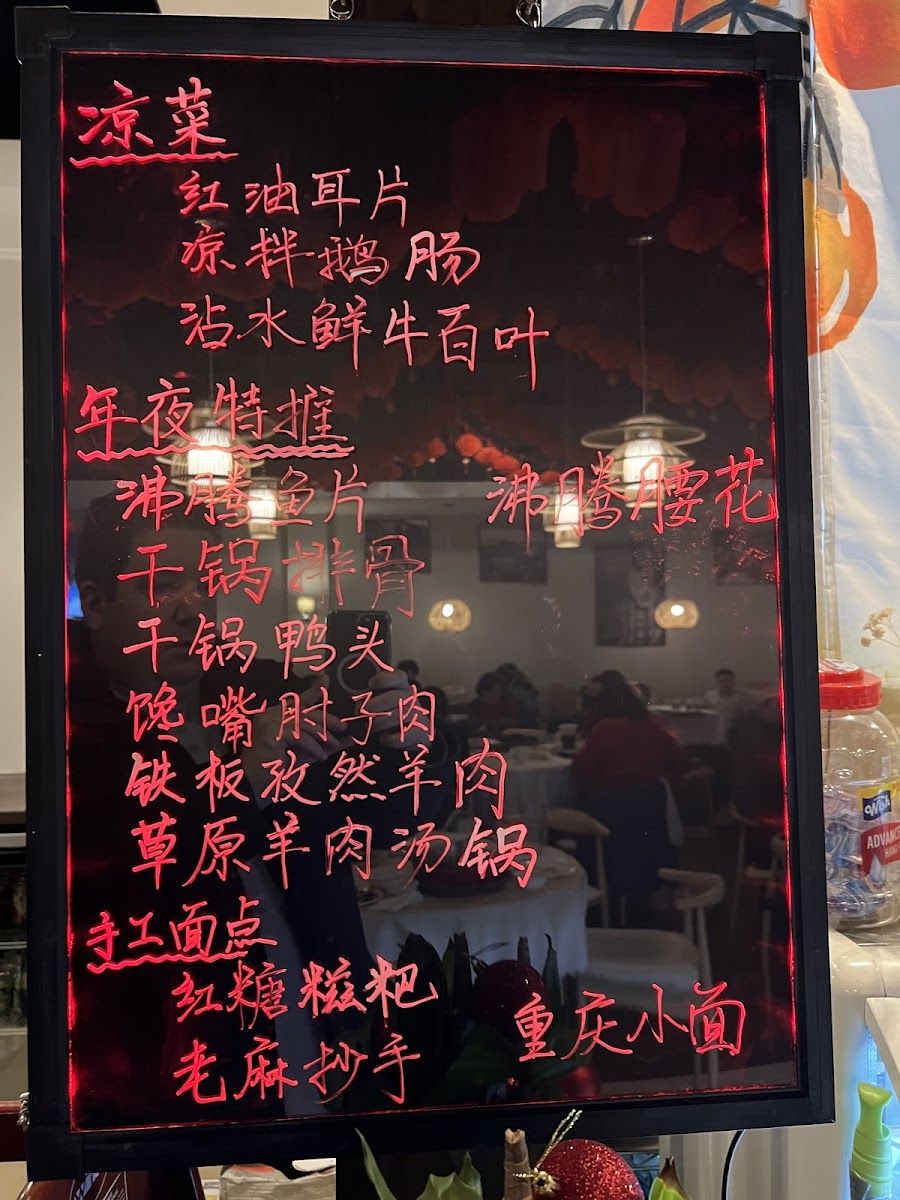 凉菜
红油耳片
凉拌鹅肠
沾水鲜牛百叶
年夜特推
沸腾鱼片 沸腾腰花
干锅排骨
干锅鸭头
馋嘴肘子肉
铁板孜然羊肉
草原羊肉汤锅
手工面点
红糖糍粑 重庆小面
老麻抄手
ADVANCE
HAN